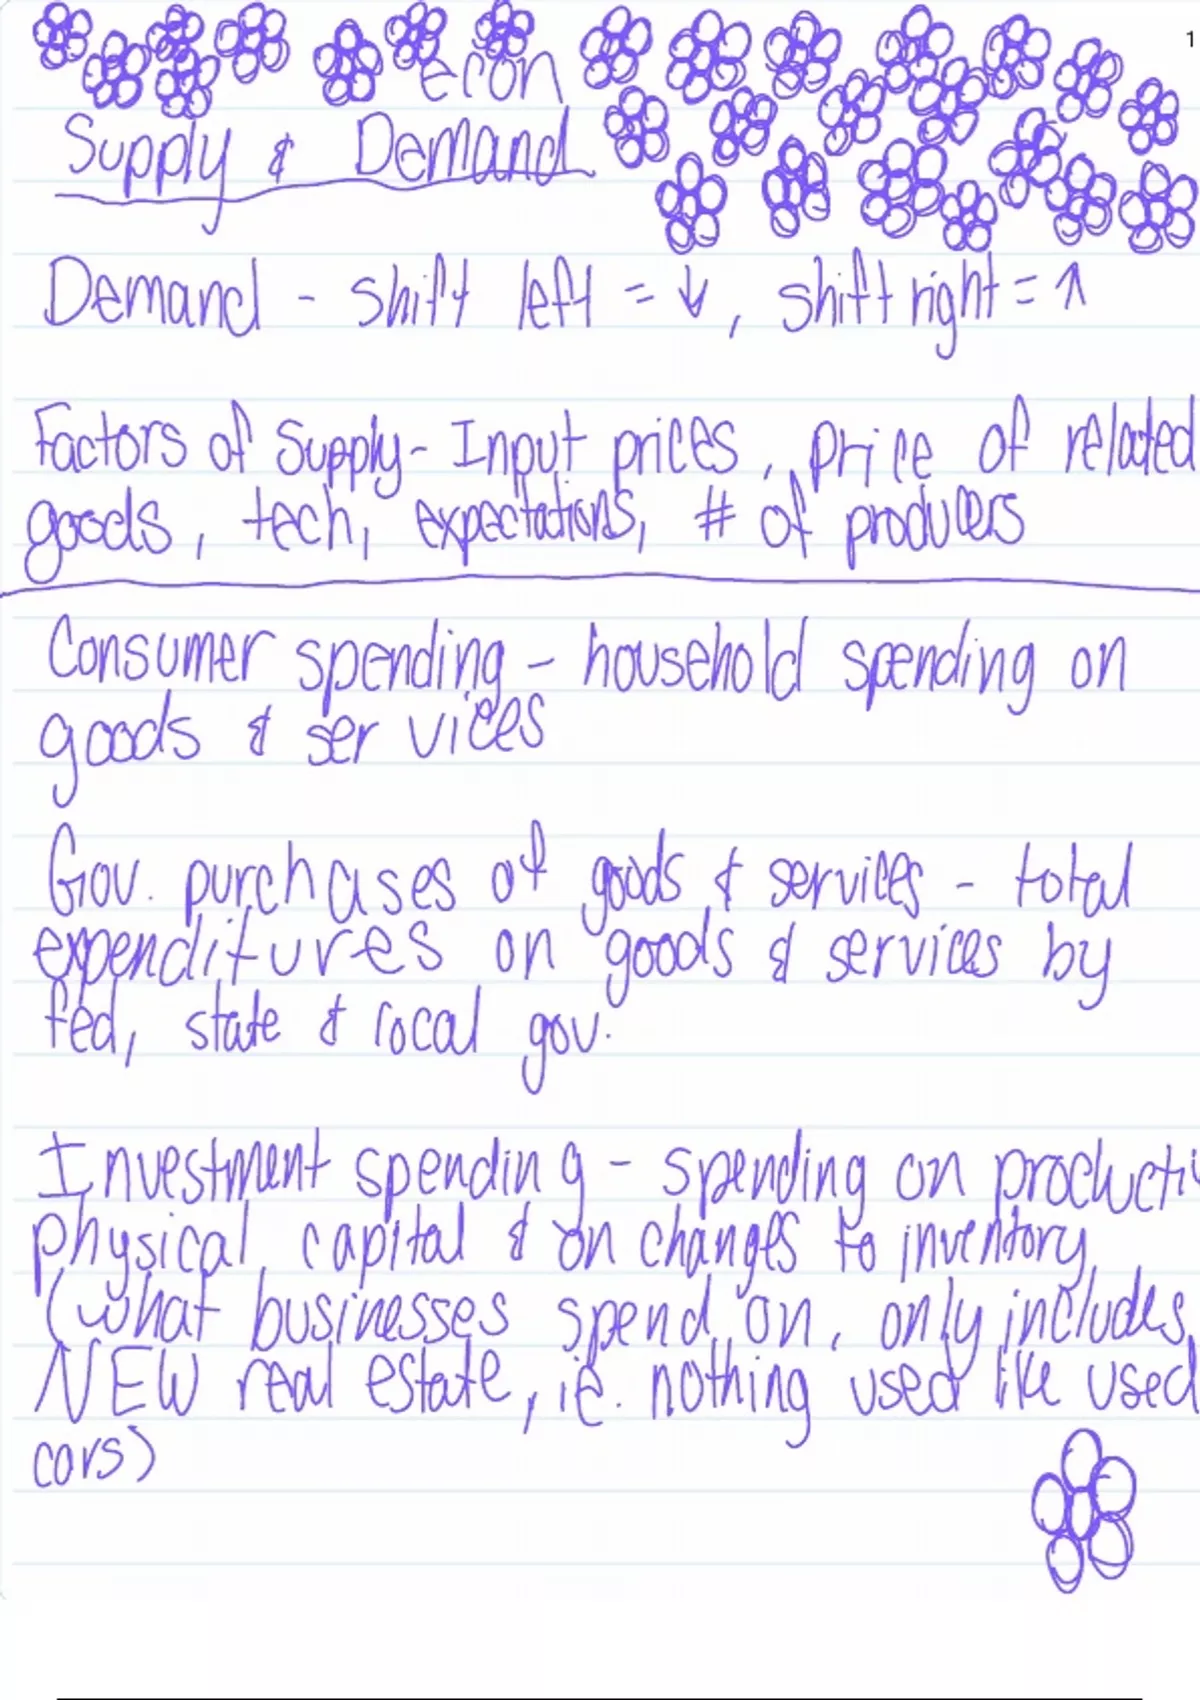 1
econ
Supply & Demand
Demand - shift left = ↓, shift right = ↑
Factors of Supply - Input prices, price of related
goods, tech, expectations, # of producers
Consumer spending - household spending on
goods & services
Gov. purchases of goods & services - total
expenditures on goods & services by
fed, state & local gov.
Investment spending - spending on producti
physical capital & on changes to inventory
(what businesses spend on, only includes
NEW real estate, i.e. nothing used like used
cars)